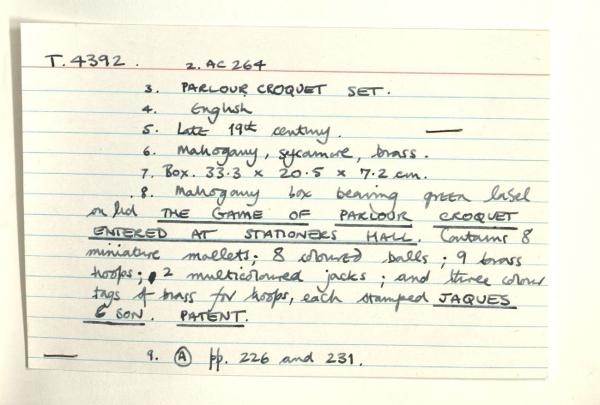 T.4392. 2. AC 264
3. PARLOUR CROQUET SET.
4. English
5. Late 19th century.
6. Mahogany, sycamore, brass.
7. Box. 33.3 x 20.5 x 7.2 cm.
8. Mahogany box bearing green label
on lid THE GAME OF PARLOUR CROQUET
ENTERED AT STATIONERS HALL. Contains 8
miniature mallets; 8 coloured balls; 9 brass
hoops; 2 multicoloured jacks; and three colour
tags of brass for hoops, each stamped JAQUES
& SON. PATENT.
9. A pp. 226 and 231.